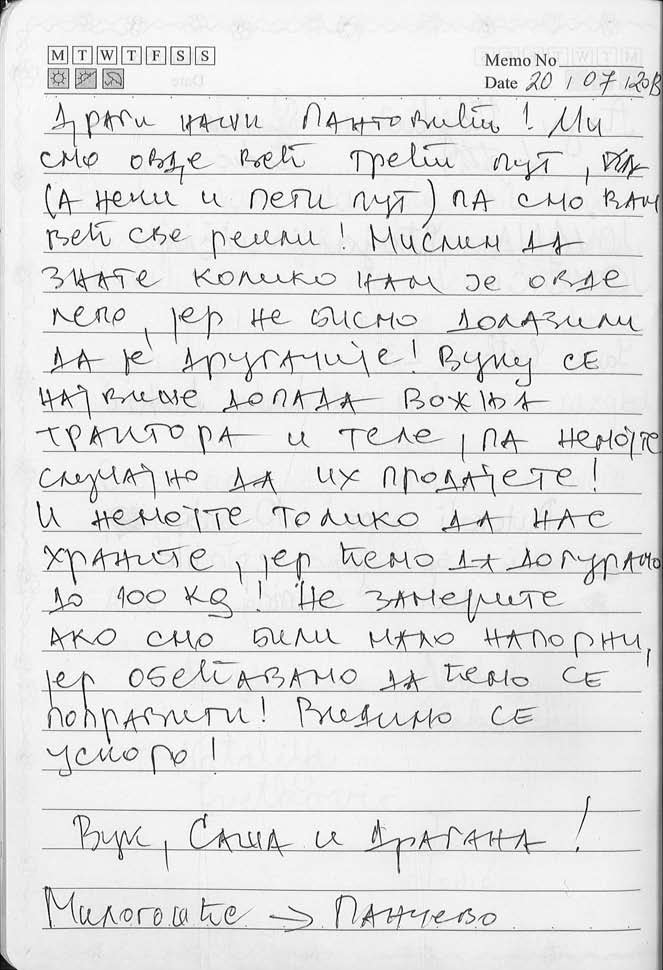 M T W T F S S
Memo No
Date 20 / 07 / 2013
Драги наши Пантовићи! Ми
смо овде већ трећи пут,
(а неки и пети пут) па смо вам
већ све рекли! Мислим да
знате колико нам је овде
лепо, јер не бисмо долазили
да је другачије! Вуку се
највише допада вожња
трактора и теле, па немојте
случајно да их продајете!
И немојте толико да нас
храните, јер ћемо да догурамо
до 100 kg! Не замерите
ако смо били мало напорни,
јер обећавамо да ћемо се
поправити! Видимо се
ускоро!
Вук, Саша и Драгана!
→ Панчево